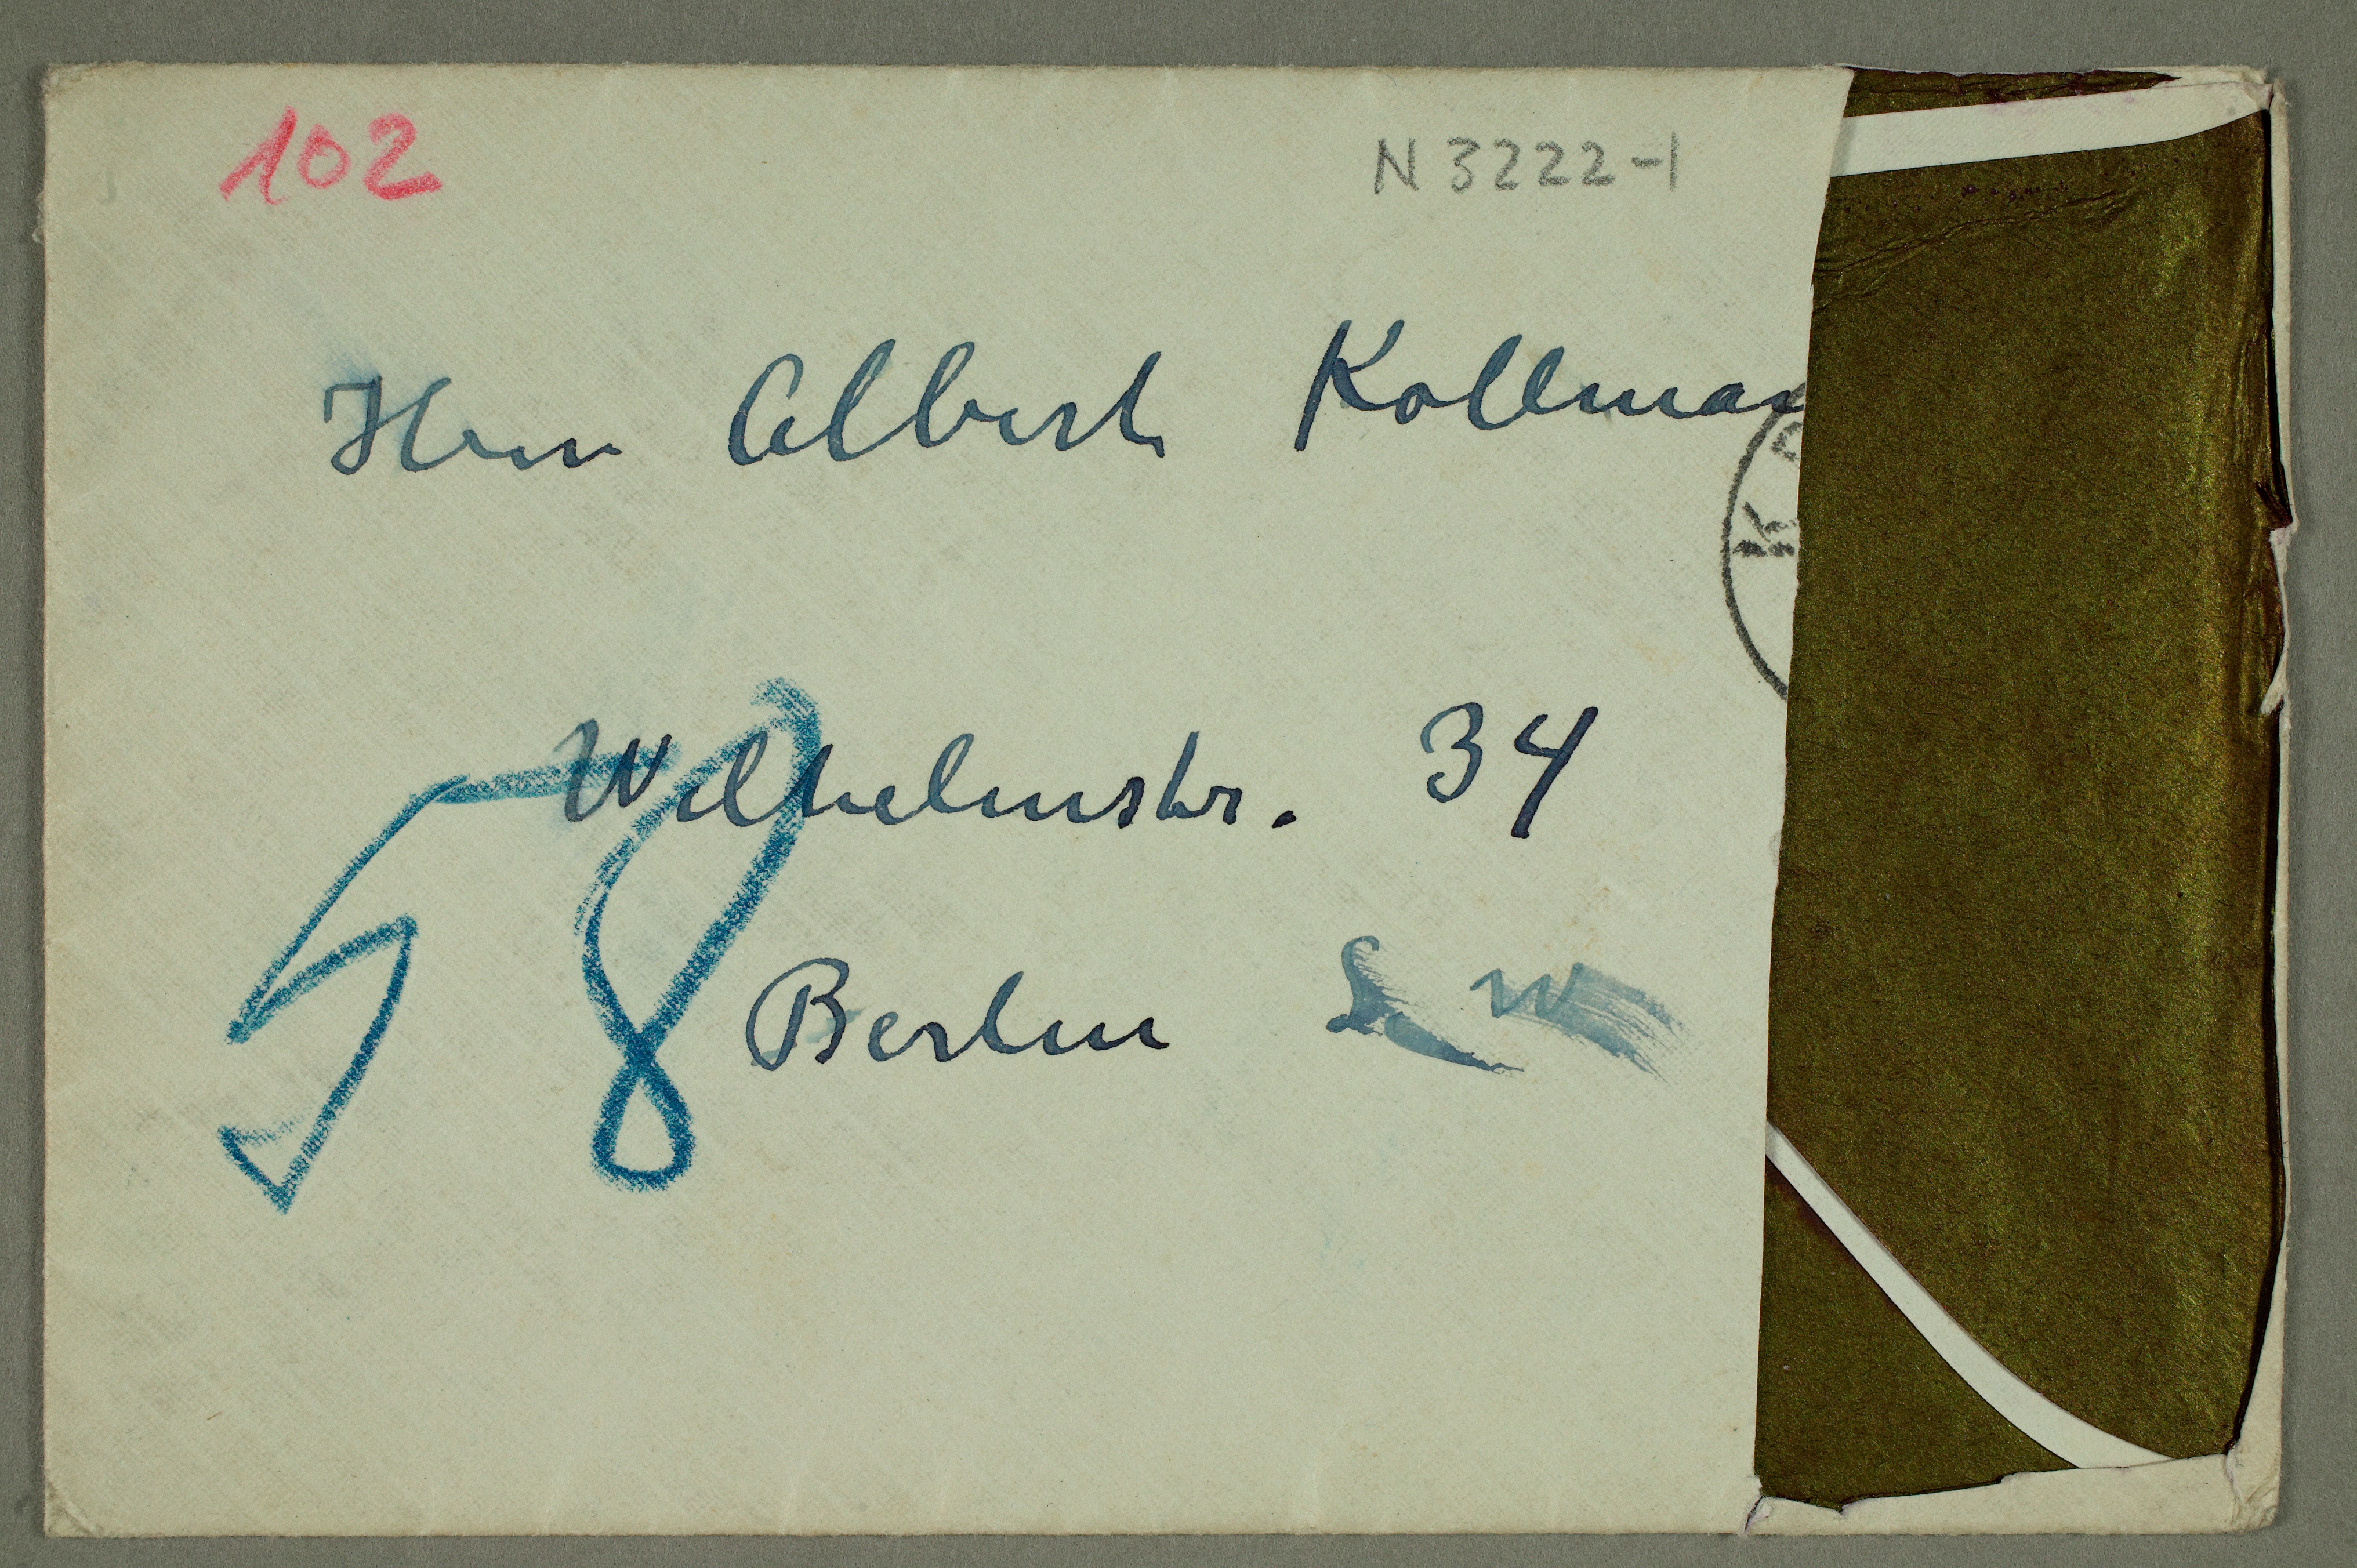 102
N 3222-1
Herrn Albert Kollman
K
Wilhelmstr. 34
58
Berlin S W